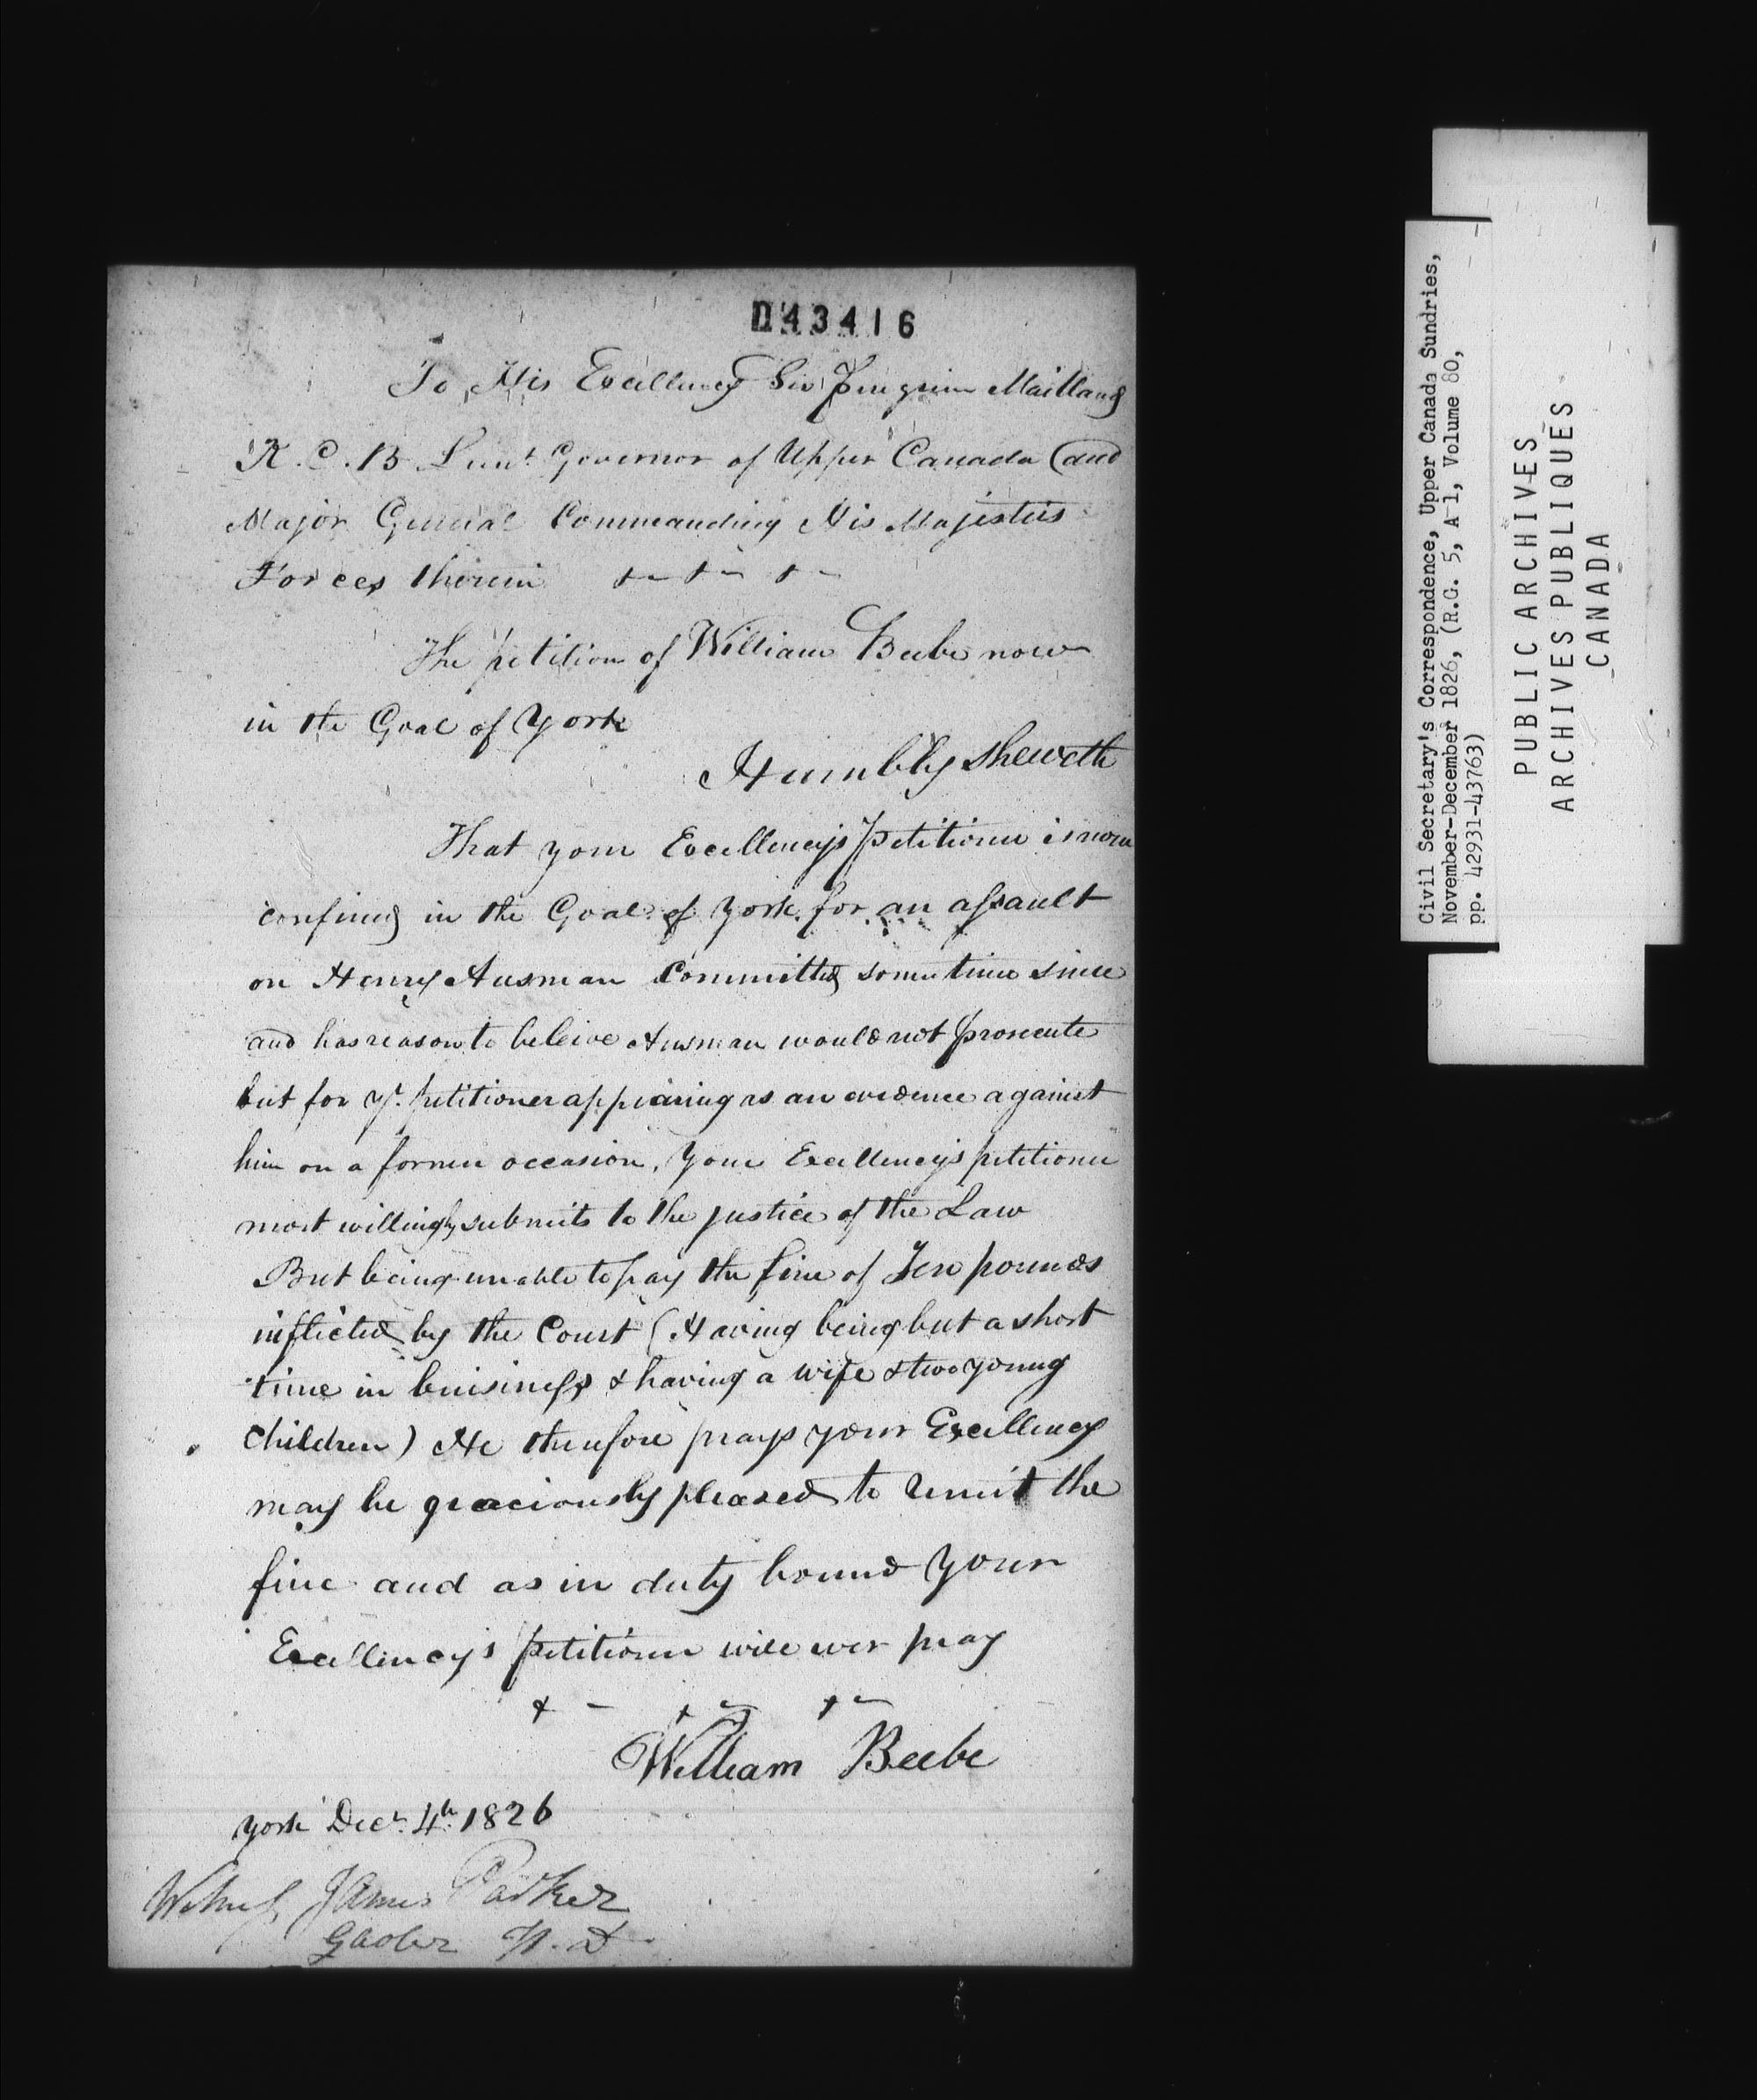 043416
To His Excellency Sir Peregrine Maitland
K.C.B Lieut. Governor of Upper Canada and
Major General Commanding His Majesties
Forces therein &- &- &-
The petition of William Beebe now
in the Goal of York
Humbly Sheweth
That your Excellencys Petitioner is now
confined in the Goal of York for an assault
on Henry Ausman Committed some time since
and has reason to beleive Ausman would not prosecute
but for yr. petitioner appearing as an evidence against
him on a former occasion, your Excellencys petitioner
most willingly submits to the justice of the Law
But being unable to pay the fine of Ten pounds
inflicted by the Court (Having being but a short
time in buisiness & having a wife & two young
Children) He therefore prays your Excellency
may be graciously pleased to remit the
fine and as in duty bound your
Excellency's petitioner will ever pray
& - &- &-
William Beebe
York Decr. 4th. 1826
Witness James Parker
Gaoler H. D
Civil Secretary's Correspondence, Upper Canada Sundries,
November-December 1826, (R.G. 5, A 1, Volume 80,
pp. 42931-43763)
PUBLIC ARCHIVES
ARCHIVES PUBLIQUES
CANADA